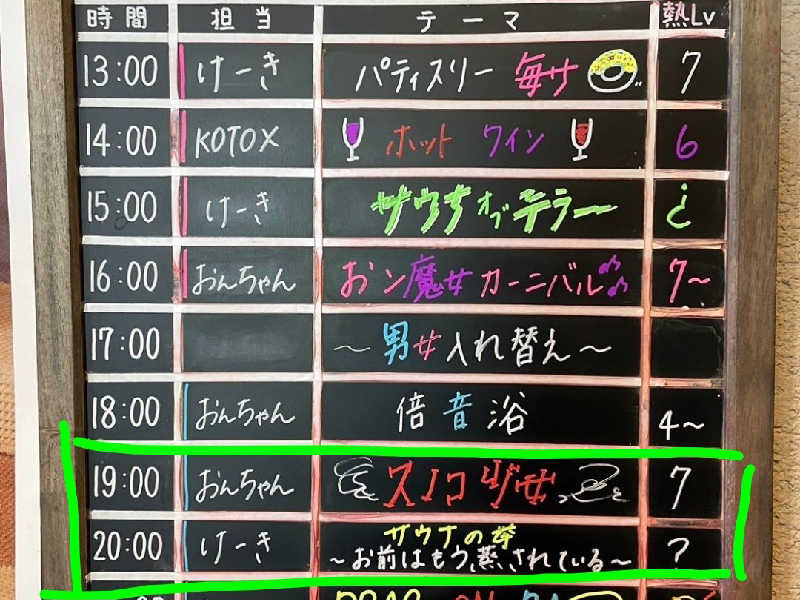 時間 担当 テーマ 熱Lv
13:00 けーき パティスリー 毎サ 7
14:00 KOTOX ホット ワイン 6
15:00 けーき サウナオブテラー ¿
16:00 おんちゃん おン魔女カーニバル 7~
17:00 ~男女入れ替え~
18:00 おんちゃん 倍音浴 4~
19:00 おんちゃん スノコ 7
20:00 けーき サウナの拳 ?
~お前はもう蒸されている~